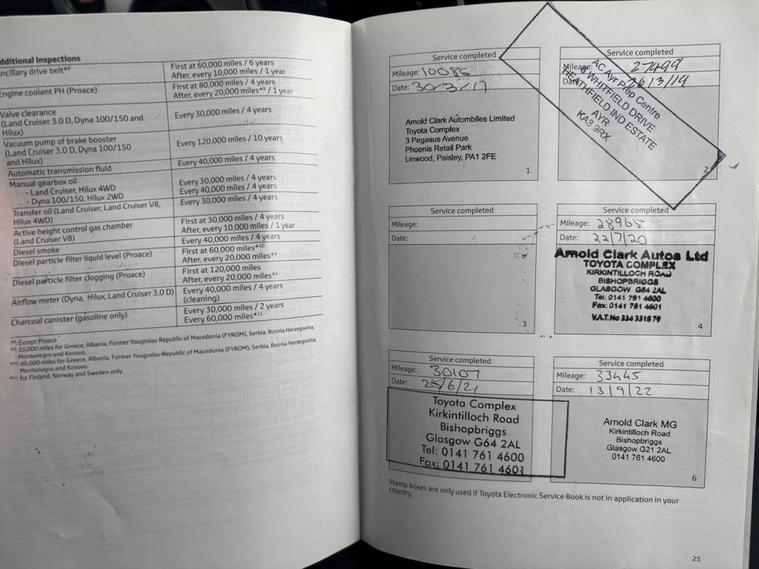 dditional Inspections
ncillary drive belt*⁸
First at 60,000 miles / 6 years
After, every 10,000 miles / 1 year
Engine coolant PH (Proace)
First at 80,000 miles / 4 years
After, every 20,000 miles*⁹ / 1 year
Valve clearance
(Land Cruiser 3.0 D, Dyna 100/150 and
Hilux)
Every 30,000 miles / 4 years
Vacuum pump of brake booster
(Land Cruiser 3.0 D, Dyna 100/150
and Hilux)
Every 120,000 miles / 10 years
Automatic transmission fluid
Every 40,000 miles / 4 years
Manual gearbox oil
- Land Cruiser, Hilux 4WD
- Dyna 100/150, Hilux 2WD
Every 30,000 miles / 4 years
Every 40,000 miles / 4 years
Transfer oil (Land Cruiser, Land Cruiser V8,
Hilux 4WD)
Every 30,000 miles / 4 years
Active height control gas chamber
(Land Cruiser V8)
First at 30,000 miles / 4 years
After, every 10,000 miles / 1 year
Diesel smoke
Every 40,000 miles / 4 years
Diesel particle filter liquid level (Proace)
First at 60,000 miles*¹⁰
After, every 20,000 miles*⁹
Diesel particle filter clogging (Proace)
First at 120,000 miles
After, every 20,000 miles*⁹
Airflow meter (Dyna, Hilux, Land Cruiser 3.0 D)
Every 40,000 miles / 4 years
(cleaning)
Charcoal canister (gasoline only)
Every 30,000 miles / 2 years
Every 60,000 miles*¹¹
*⁸: Except Proace
*⁹: 10,000 miles for Greece, Albania, Former Yougoslav Republic of Macedonia (FYROM), Serbia, Bosnia Herzegovina,
Montenegro and Kosovo.
*¹⁰: 48,000 miles for Greece, Albania, Former Yougoslav Republic of Macedonia (FYROM), Serbia, Bosnia Herzegovina,
Montenegro and Kosovo.
*¹¹: for Finland, Norway and Sweden only
Service completed
Mileage: 10086
Date: 30/3/17
Arnold Clark Automobiles Limited
Toyota Complex
3 Pegasus Avenue
Phoenis Retail Park
Linwood, Paisley, PA1 2FE
1
Service completed
Mileage: 27499
Date: 26/3/19
AC Ayr Prep Centre
WHITFIELD DRIVE
HEATHFIELD IND ESTATE
AYR
KA8 9RX
2
Service completed
Mileage:
Date:
3
Service completed
Mileage: 28965
Date: 22/7/20
Arnold Clark Autos Ltd
TOYOTA COMPLEX
KIRKINTILLOCH ROAD
BISHOPBRIGGS
GLASGOW G64 2AL
Tel: 0141 761 4600
Fax: 0141 761 4601
V.A.T. No 334 3318 79
4
Service completed
Mileage: 30107
Date: 25/6/21
Toyota Complex
Kirkintilloch Road
Bishopbriggs
Glasgow G64 2AL
Tel: 0141 761 4600
Fax: 0141 761 4601
Service completed
Mileage: 33445
Date: 13/9/22
Arnold Clark MG
Kirkintilloch Road
Bishopbriggs
Glasgow G21 2AL
0141 761 4600
6
Stamp boxes are only used if Toyota Electronic Service Book is not in application in your
country.
25